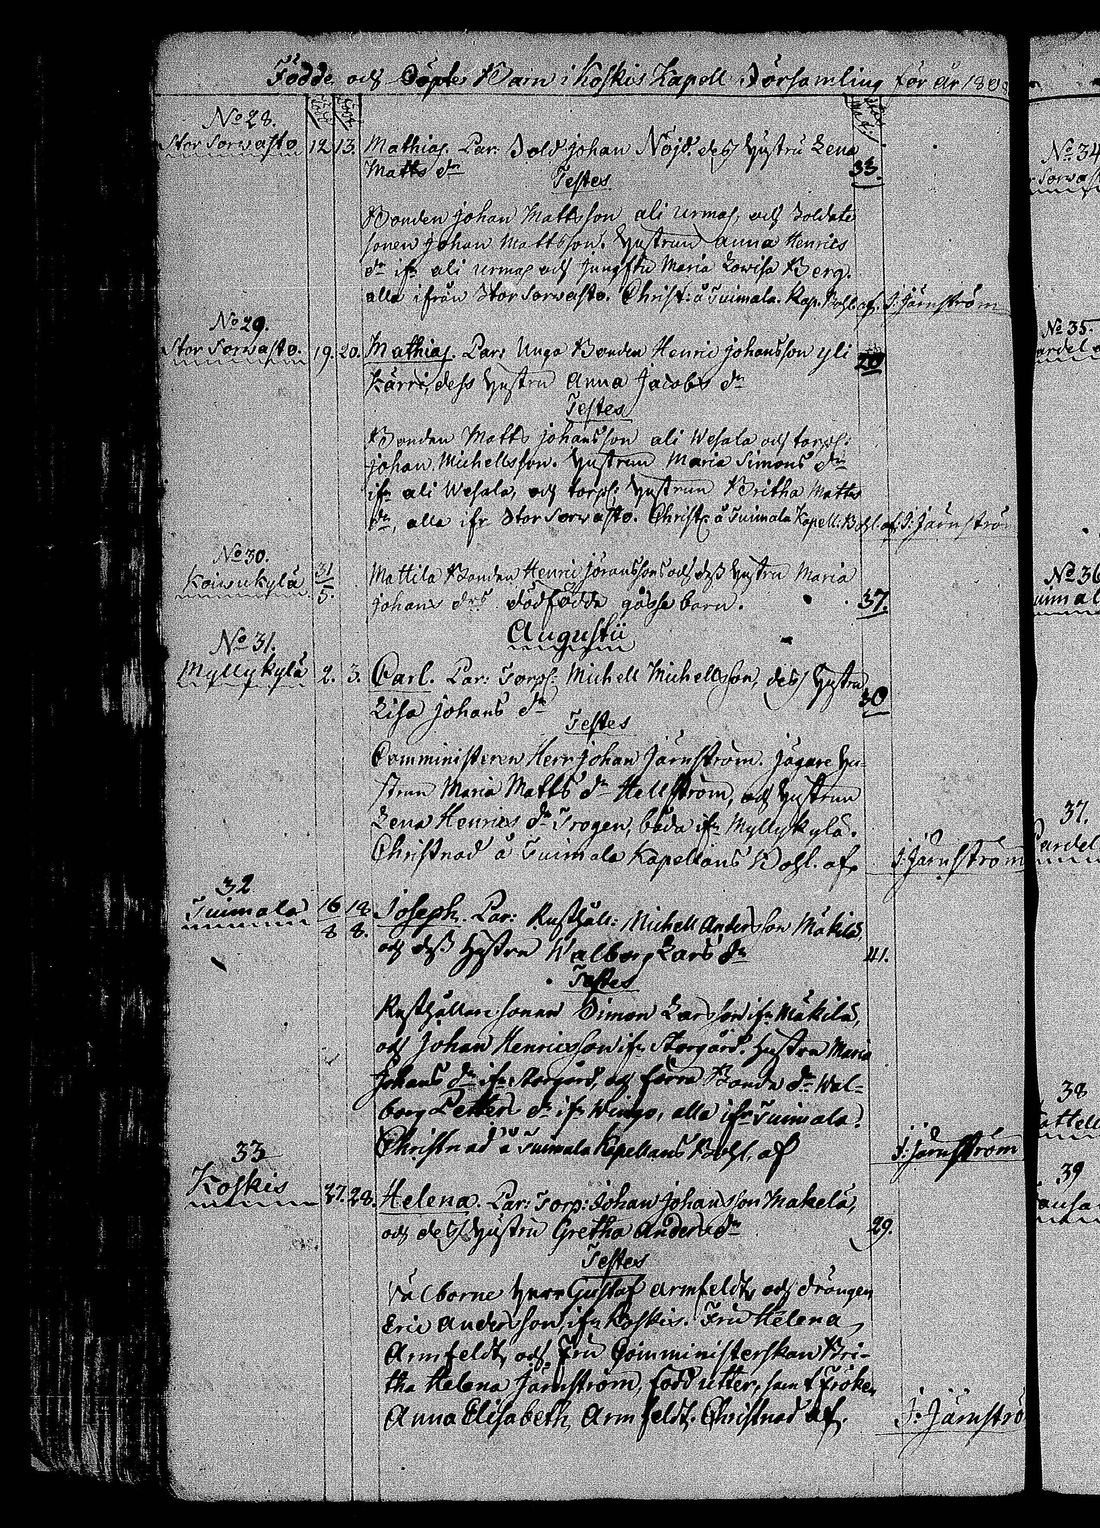 Födde och Döpte Barn i Koskis Capell Församling för år 180
No 28.
Stor Sorvasto 12 13. Mathias. Par: Sold Johan Nöjd. dess hustru Lena
Matts dr 33.
Testes
Bonden Johan Mattsson ali Urmas, och Soldate
sonen Johan Mattsson. hustrun Anna Henrics
dr ifr ali Urmas och Jungfru Maria Lowisa Berg.
alla ifrån Stor Sorvasto. Christ: å Tuimala. Kap. Bohl. af. J: Järnström
No 29.
Stor Sorvasto. 19. 20. Mathias. Par: Unga Bonden Henric Johansson yli
Kärri, dess hustru Anna Jacobs dr 20
Testes
Bonden Matts Johansson ali Wesala och torp:
Johan Michellsson. hustrun Maria Simons dr
ifr ali Wesala, och torp: hustrun Britha Matts
dr, alla ifr Stor Sorvasto. Christ: å Tuimala Kapell: Bohl. af. J: Järnströ
No 30.
Koivukylä 31/5. Mattila Bonden Henric Jöranssons och dess hustru Maria
Johans drs dödfödda gosse barn. 37.
Augustii
No 31.
Myllykylä 2. 3. Carl. Par: Torp: Michell Michellsson, dess hustru
Lisa Johans dr 30
Testes
Comministeren Herr Johan Järnström. Jägare hu-
strun Maria Matts dr Hellström, och hustrun
Lena Henrics dr Trogen, båda ifr Myllykylä.
Christnad å Tuimala Kapellans Bohl. af. J: Järnström
32
Tuimala 16/8 18/8. Joseph. Par: Rusthåll: Michell Andersson Mäkilä,
och dess hustru Walborg Lars dr 41.
Testes
Rusthållare sonen Simon Larsson ifr Mäkilä,
och Johan Henricsson ifr Storgård. hustru Maria
Johans dr ifr Storgård, och förra Bonde dr Wal-
borg Petters dr ifr Wingo, alla ifr Tuimala.
Christnad å Tuimala Kapellans Bohl. af J: Järnström
33
Koskis 27. 28. Helena. Par: Torp: Johan Johansson Makelä,
och dess hustru Gretha Anders dr 29.
Testes
Välborne Herr Gustaf Armfeldt, och drängen
Eric Andersson, ifr Koskis. Fru Helena
Armfeldt, och Fru Comministerskan Bri-
tha Helena Järnström, född utter, samt Fröken
Anna Elisabeth Armfeldt. Christnad af. J: Järnströ
No 34
No 35.
No 36
37.
38
39